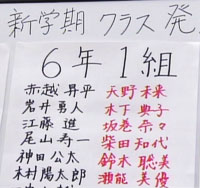 新学期 クラス 発
6年1組
赤越 昇平 天野 未来
岩井 勇人 木下 典子
江藤 進 坂巻 奈々
尾山 寿一 柴田 知代
神田 公太 鈴木 聡美
木村 陽太郎 瀬能 美優